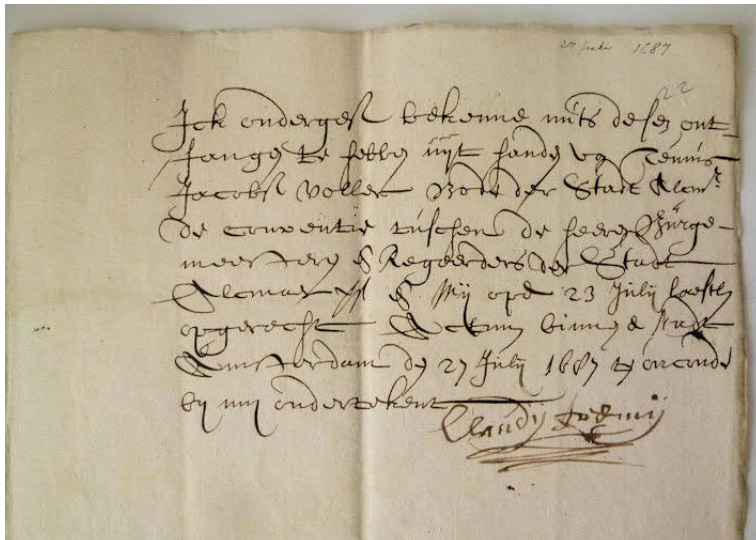 27 julij 1687
22
Ick onderges bekenne mits desen ont
fangen te hebben uijt handen van Teunis
Jacobs Voller Bode der Stadt Alcmr
de conventie tusschen de heeren Burge-
meesteren & Regeerders der Stadt
Alcmaer & Mij opde 23 Julij laestl
opgerecht Actum binnen de stadt
Amsterdam den 27 Julij 1687 t' oirconde
bij mij ondertekent